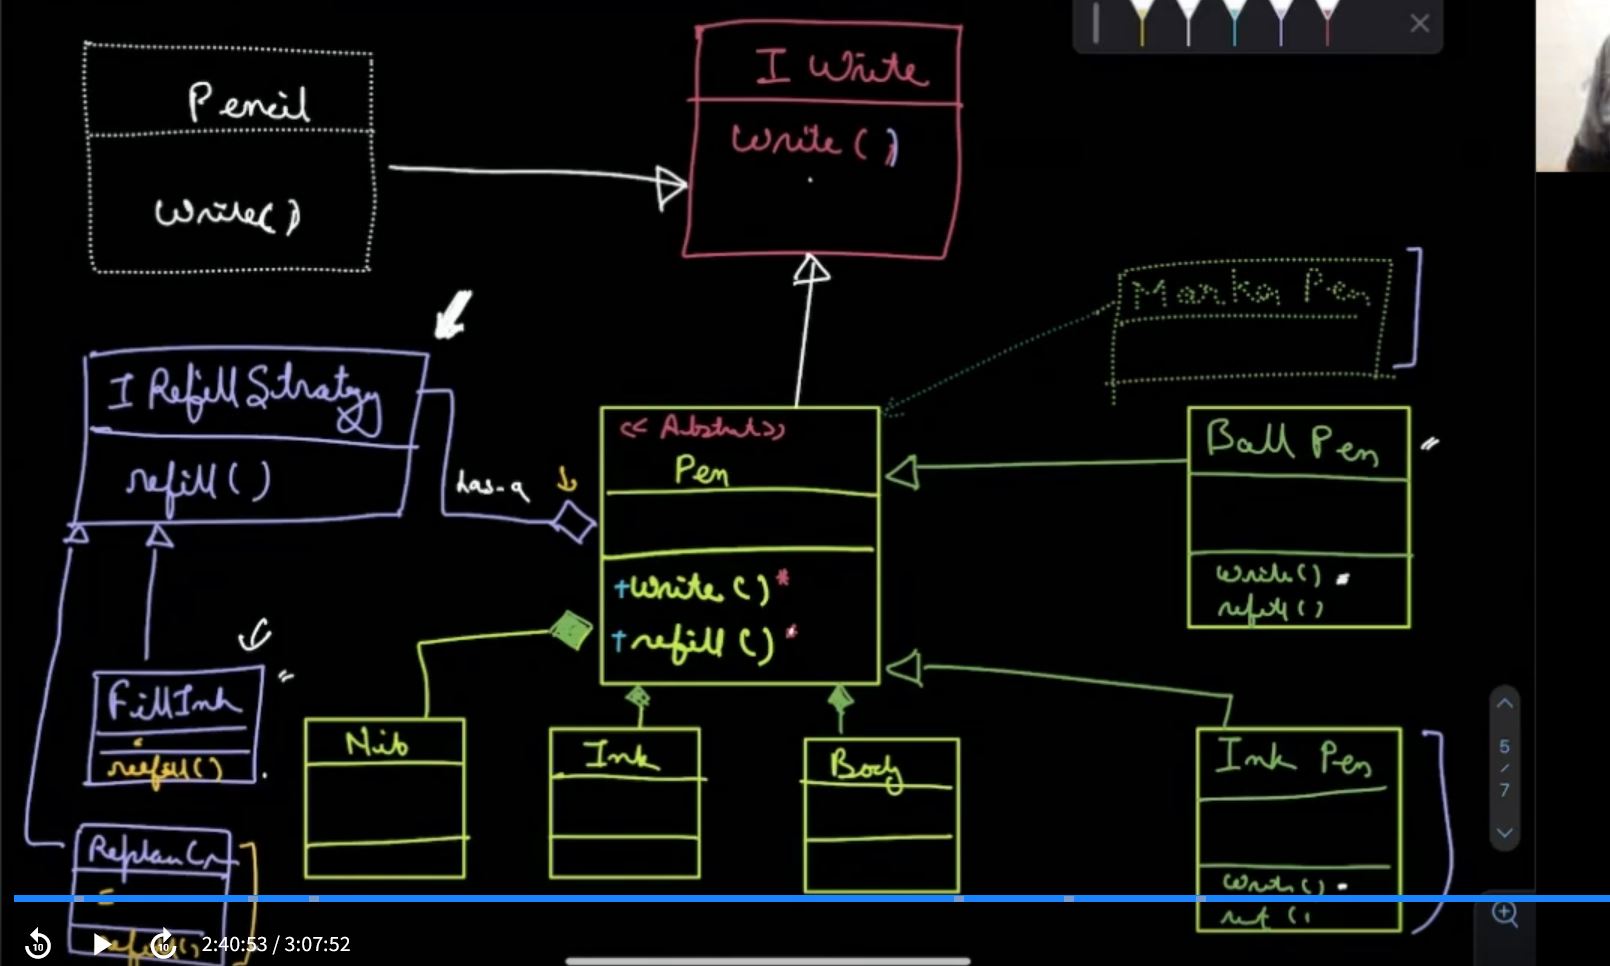 Pencil
Write()
I Write
Write()
Marker Pen
I RefillStrategy
refill()
has-a
<< Abstract >>
Pen
+write()*
+refill()*
Ball Pen
write()
refill()
FillInk
refill()
Nib
Ink
Body
Ink Pen
write()
5
/
7
refill()
10
10
2:40:53 / 3:07:52